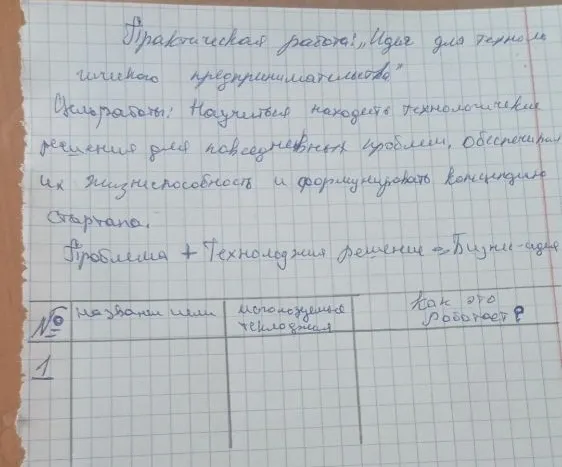 Практическая работа: „Идеи для техноло
гического предпринимательства"
Цель работы: Научиться находить технологические
решения для повседневных проблем, обеспечивая
их жизнеспособность и формулировать концепцию
стартапа.
Проблема + Технолоджия решение = Бизнес-идея
№ названи идеи используемые как это
технолоджия работает?
1